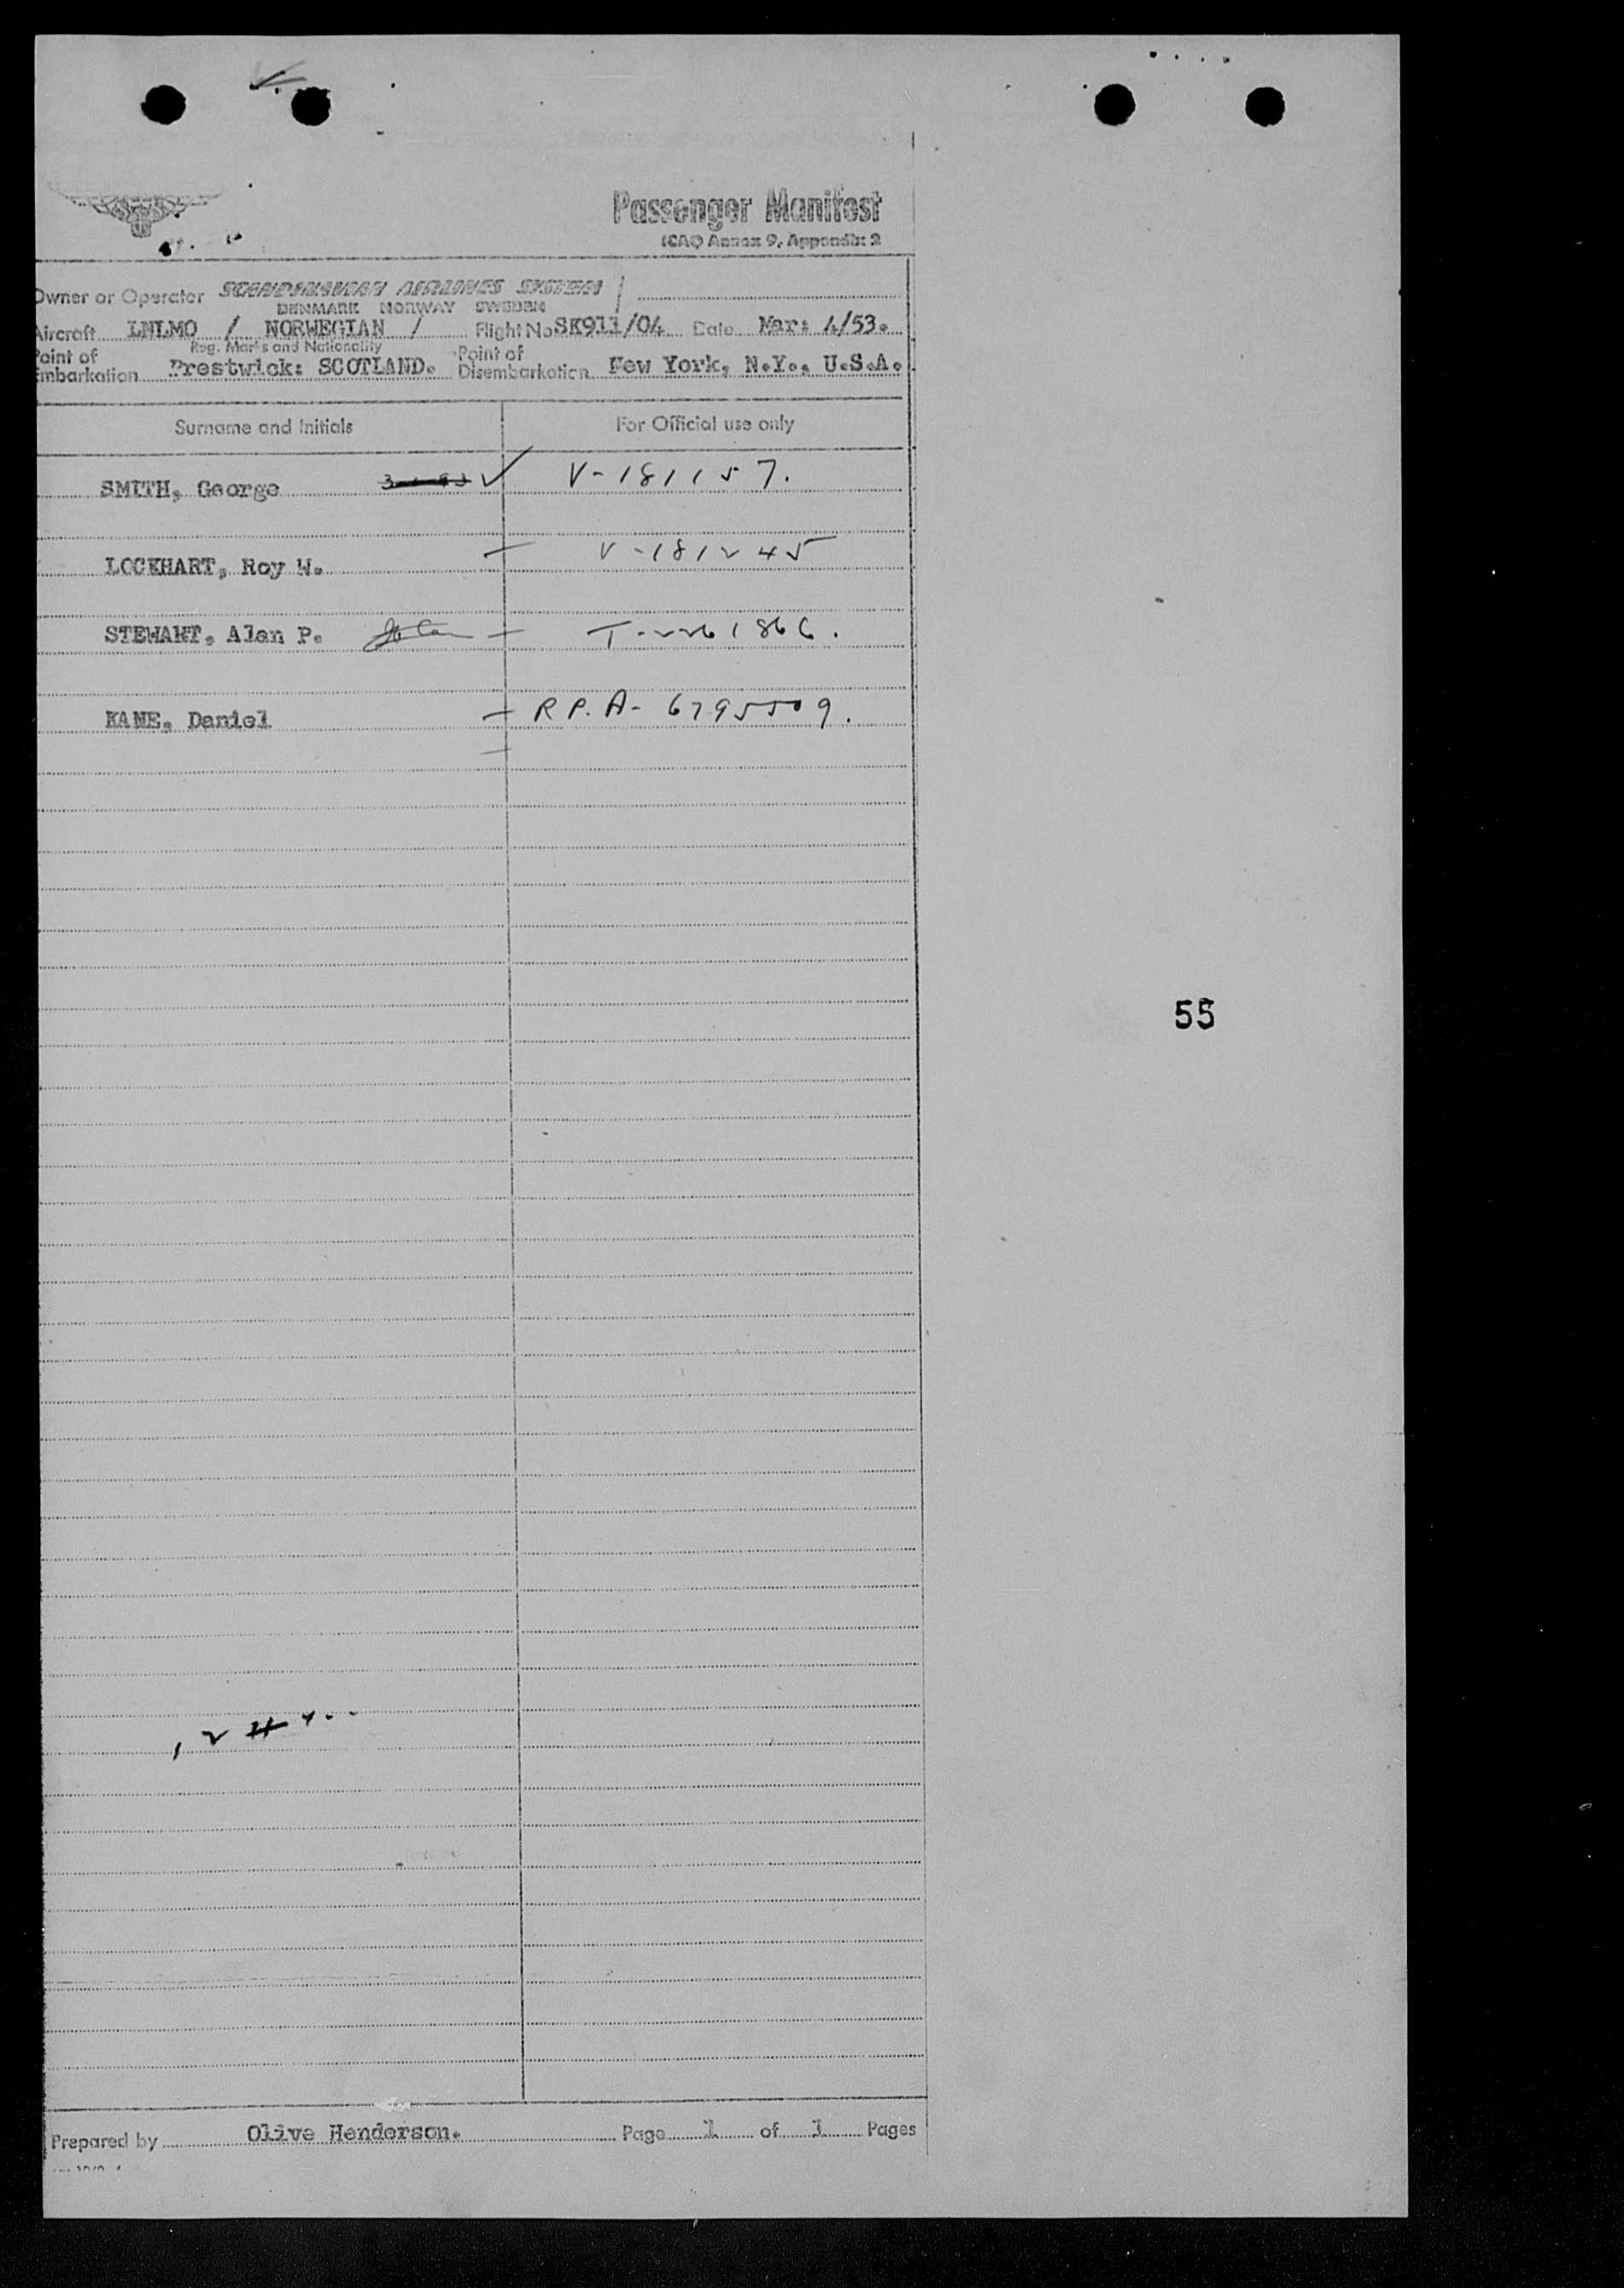 Passenger Manifest
(ICAO Annex 9, Appendix 2
Owner or Operator SCANDINAVIAN AIRLINES SYSTEM
DENMARK NORWAY SWEDEN
Aircraft LNLMO / NORWEGIAN / Flight No SK911/04 Date Mar: 4/53.
Reg. Marks and Nationality
Point of Embarkation Prestwick: SCOTLAND. Point of Disembarkation New York, N.Y., U.S.A.
Surname and Initials For Official use only
SMITH, George V-181157.
LOCKHART, Roy W. V-181245
STEWART, Alan P. T-2261866.
KANE, Daniel R.P.A- 6795509.
55
Prepared by Olive Henderson. Page 1 of 1 Pages